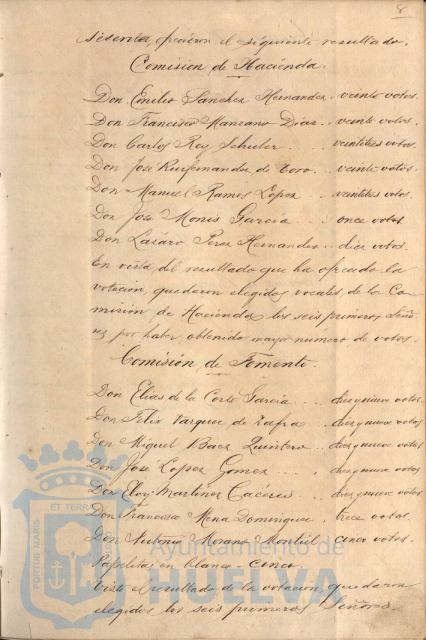 8
sesenta, ofrecieron el siguiente resultado.
Comision de Hacienda.
Don Emilio Sanchez Hernandez . veinte votos.
Don Francisco Manzano Diaz . veinte votos.
Don Carlos Rey Schuler . . veintitres votos.
Don José Ruifernandez de Toro . . veinte votos.
Don Manuel Ramos Lopez . . veintitres votos.
Don José Monis Garcia . . once votos.
Don Lázaro Perez Hernandez . . diez votos.
En vista del resultado que ha ofrecido la
votación, quedaron elegidos vocales de la Co-
misión de Hacienda los seis primeros Seño-
res por haber obtenido mayor número de votos.
Comisión de Fomento.
Don Elias de la Corte Garcia . diez y nueve votos.
Don Felix Vazquez de Zafra . diez y nueve votos.
Don Miguel Baez Quintero . . diez y nueve votos
Don José Lopez Gomez . . . diez y nueve votos
Don Eloy Martinez Cacéres . . diez y nueve votos.
Don Francisco Mena Dominguez . trece votos.
Don Antonio Morano Montiel . cinco votos.
Papeletas en blanco . cinco.
Visto el resultado de la votacion, quedaron
elegidos los seis primeros Señores.
PORTUS MARIS ET TERRAE
Ayuntamiento de
HUELVA